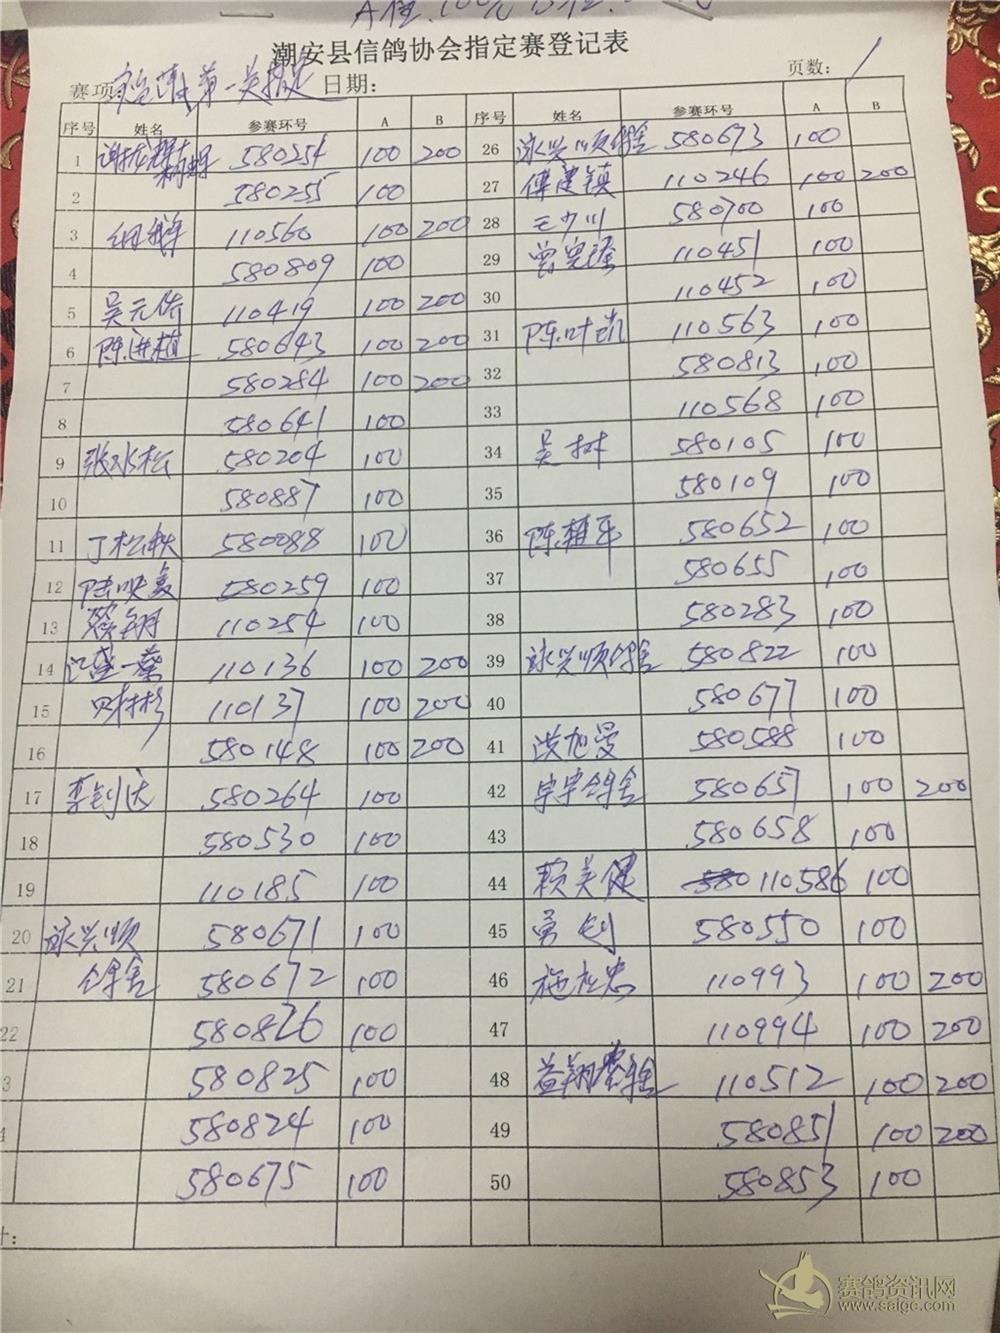 潮安县信鸽协会指定赛登记表
赛项: 第一关指定 日期: 页数: 1
序号 姓名 参赛环号 A B 序号 姓名 参赛环号 A B
1 580254 100 200 26 泳兴顺鸽舍 580673 100
2 580255 100 27 傅建镇 110246 100 200
3 110560 100 200 28 王少川 580700 100
4 580809 100 29 110451 100
5 吴元佑 110419 100 200 30 110452 100
6 陈进植 580643 100 200 31 陈叶凯 110563 100
7 580284 100 200 32 580813 100
8 580641 100 33 110568 100
9 张冰松 580204 100 34 吴树 580105 100
10 580887 100 35 580109 100
11 丁松轶 580088 100 36 陈植平 580652 100
12 陆映美 580259 100 37 580655 100
13 110254 100 38 580283 100
14 110136 100 200 39 泳兴顺鸽舍 580822 100
15 110137 100 200 40 580677 100
16 580148 100 200 41 洪旭曼 580588 100
17 李钊达 580264 100 42 鸽舍 580657 100 200
18 580530 100 43 580658 100
19 110185 100 44 赖美健 110586 100
20 泳兴顺 580671 100 45 勇钊 580550 100
21 鸽舍 580672 100 46 施松忠 110993 100 200
22 580826 100 47 110994 100 200
3 580825 100 48 益翔赛鸽舍 110512 100 200
4 580824 100 49 580851 100 200
580675 100 50 580853 100
计:
赛鸽资讯网
www.saige.com